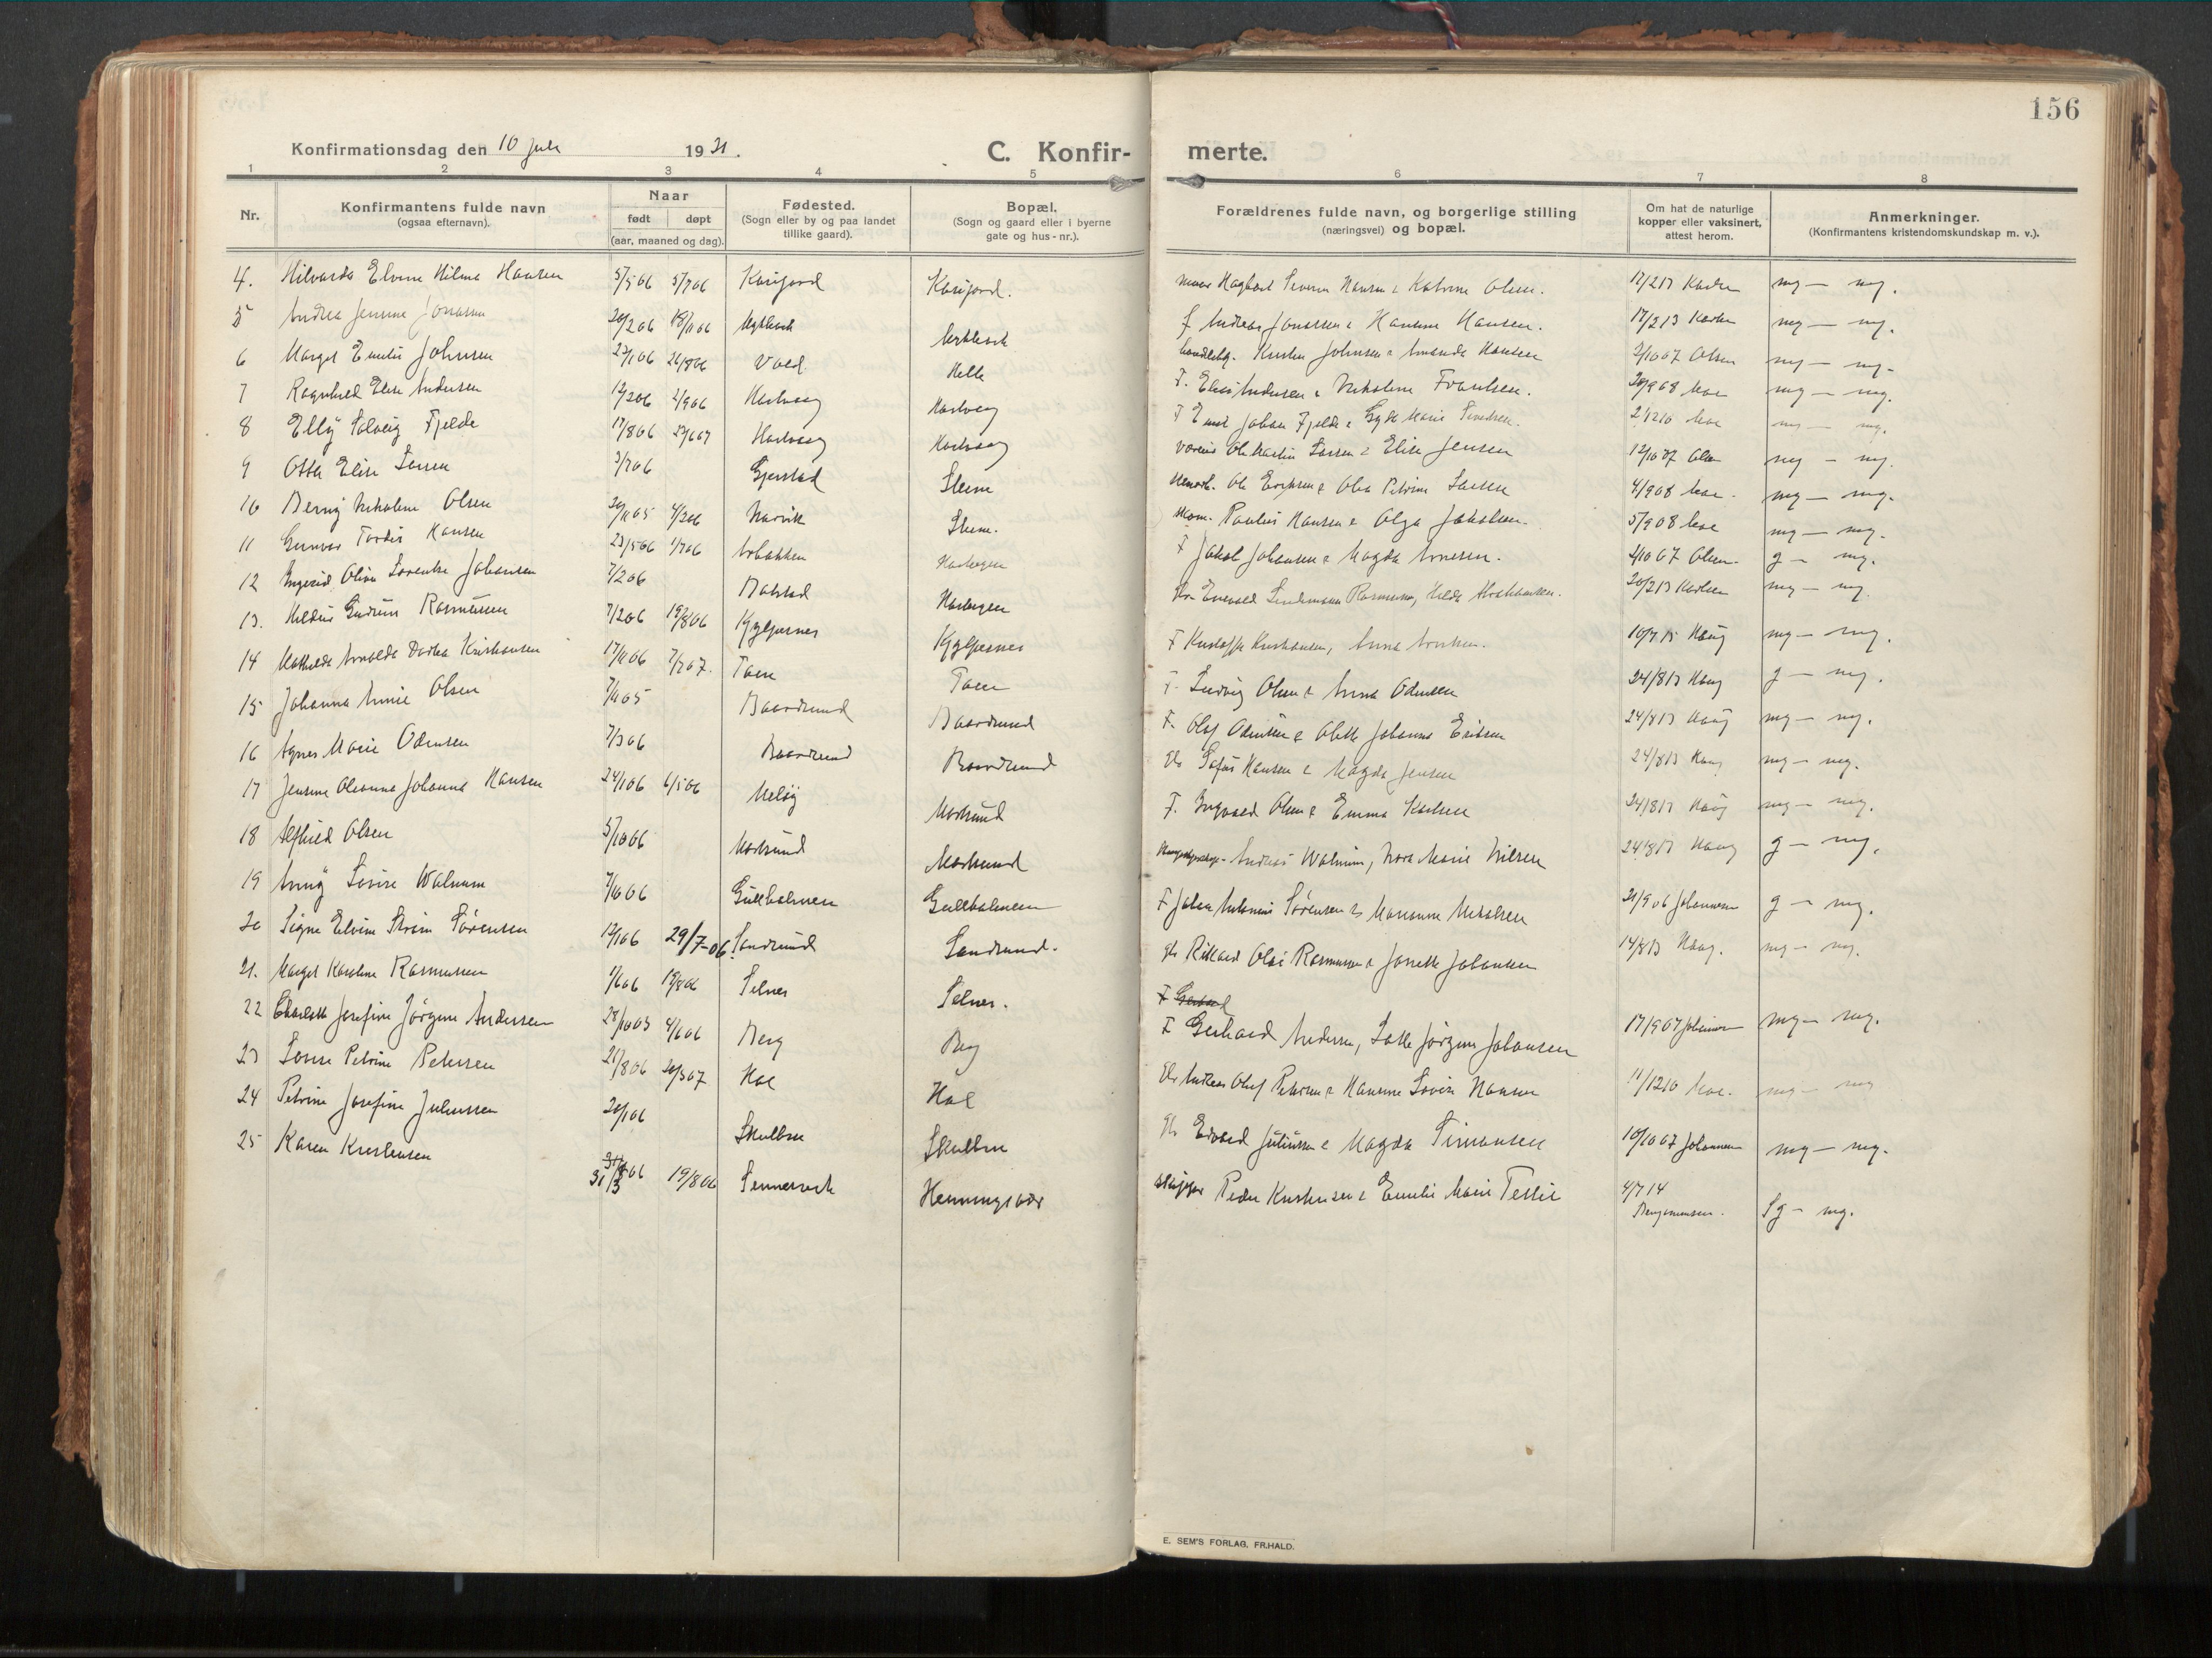 156
Konfirmationsdag den 10 juli 1921.
C. Konfir-
merte.
1 2 3 4 5 6 7 8
Nr.
Konfirmantens fulde navn
(ogsaa efternavn).
Naar
født døpt
(aar, maaned og dag).
Fødested.
(Sogn eller by og paa landet
tillike gaard).
Bopæl.
(Sogn og gaard eller i byerne
gate og hus-nr.).
Forældrenes fulde navn, og borgerlige stilling
(næringsvei) og bopæl.
Om hat de naturlige
kopper eller vaksinert,
attest herom.
Anmerkninger.
(Konfirmantens kristendomskundskap m. v.).
4. Hilvarda Elvine Hilma Hansen 5/5 06 5/7 06 Kasfjord Kasfjord. Hagbart Severin Hansen & Katrine Olsen. 17/2 13 mg — mg.
5 Andrea Jensine Jonassen 20/2 06 18/11 06 f Andreas Jonassen & Hansine Hansen. 17/2 13 mg — mg.
6 Margit Emilie Johnsen 23/1 06 26/8 06 Vold. Helle Kristen Johnsen & Amanda Hansen 2/10 07 Olsen mg — mg.
7 Ragnhild Elise Andersen 12/2 06 2/9 06 F. Elias Andersen & Nikoline Frantsen. 20/9 08 Moe mg — mg.
8 Elly Solveig Fjelde 17/8 06 23/6 07 F Johan Fjelde & Marie 2/12 10 Moe mg — mg.
9 Otta Elise Larsen 3/7 06 Gjerstad Steine Ole Martin Larsen & Elise Jensen 12/10 07 Olsen mg — mg.
10 Berny Nikoline Olsen 20/11 05 4/2 06 Narvik Steine. Petrine Larsen 4/9 08 Moe mg — mg.
11 Gunvor Tordis Hansen 23/5 06 1/7 06 Paulus Hansen & Olga Jakobsen. 5/9 08 Moe mg — mg.
12 Ingerid Olina Lorentse Johansen 7/2 06 F Jakob Johansen & Magda Arnesen. 2/10 07 Olsen. g — mg.
13. Gudrun Rasmussen 7/2 06 19/8 06 Kylpesnes Kylpesnes Enevold Rasmussen, Hilda 20/2 13 mg — mg.
14 Mathilde Arnolda Dorthea Kristiansen 17/11 06 7/7 07. Taen Taen F Kristoffer Kristiansen, Anna 10/7 15 Haug mg — mg.
15 Johanna Annie Olsen 7/11 05 Baardsund Baardsund F. Ludvig Olsen & Anna Odensen 24/8 13 Haug g — mg.
16 Agnes Marie Odensen 7/3 06 Baardsund Baardsund F. Olaf Odensen & Olette Johanna Eriksen 24/8 13 Haug mg — mg.
17 Jensine Oleanna Johanna Hansen 24/1 06 6/5 06 Mortsund Sofus Hansen & Magda Jensen 24/8 13 Haug mg — mg.
18 Alfhild Olsen 5/10 06 Mortsund Mortsund F. Ingvald Olsen & Emma Karlsen 24/8 13 Haug mg — mg.
19 Anny Lovise Walnum 7/10 06 Gulbholmen Gulbholmen Andreas Walnum, Nora Marie Nilsen 24/8 13 Haug g — mg.
20 Signe Elvine Strøm Sørensen 12/1 06 29/7-06. Sandsund Sandsund. F Johan Antonius Sørensen & Marianne Mikalsen 21/9 06 Johannesen g — mg.
21. Margit Karoline Rasmussen 1/6 06 19/8 06 Selnes Selnes. Rikard Olai Rasmussen & Jonette Johansen 14/8 13 Haug. mg — mg.
22 Charlotte Josefine Jørgine Andersen 28/10 05 4/6 06 Berg Berg F Gerhard Andersen, Lotte Jørgine Johansen 17/9 07 Johannesen mg — mg.
23 Lovise Petrine Petersen 21/8 06 20/3 07 Hol Hol Andreas Oluf Petersen & Hansine Lovise Hansen 11/12 10 Moe. mg — mg
24 Petrine Josefine Juliussen 20/1 06 Skulbru Skulbru Edvard Juliussen & Magda Simonsen 10/10 07 Johannesen mg — mg.
25 Karen Kristensen 31/3 06 19/8 06 Sennesvik Henningsvær Skipper Peder Kristensen & Emilie Marie 4/7 14 Sg — mg.
E. SEM'S FORLAG, FR.HALD.